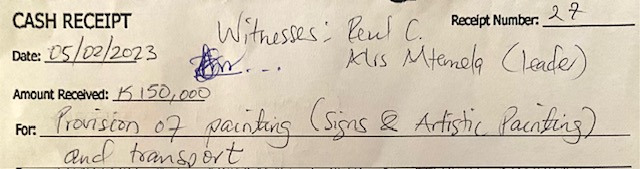 CASH RECEIPT
Receipt Number: 27
Witnesses: Reul C.
Date: 05/02/2023
Mtemela (Leader)
Amount Received: K150,000
For: Provision of painting (Signs & Artistic Painting)
and transport